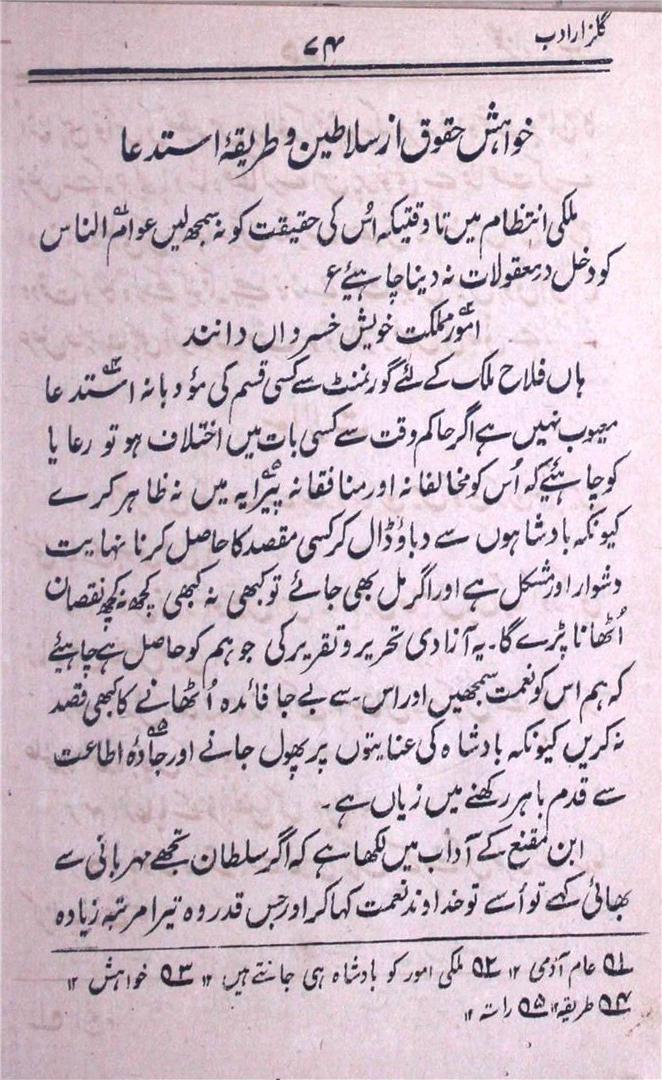 گلزار ادب
۷۴
خواہش حقوق از سلاطین و طریقۂ استدعا
ملکی انتظام میں تا وقتیکہ اُس کی حقیقت کو نہ سمجھ لیں عوام۱؎ الناس
کو دخل در معقولات نہ دینا چاہیئے ۶
امور۲؎ مملکت خویش خسرواں دانند
ہاں فلاح ملک کے لئے گورنمنٹ سے کسی قسم کی مؤدبانہ استدعا۳؎
معیوب نہیں ہے اگر حاکم وقت سے کسی بات میں اختلاف ہو تو رعایا
کو چاہئیے کہ اُس کو مخالفانہ اور منافقانہ پیرایہ۴؎ میں نہ ظاہر کرے
کیونکہ بادشاہوں سے دباؤ ڈال کر کسی مقصد کا حاصل کرنا نہایت
دشوار اور مشکل ہے اور اگر مل بھی جائے تو کبھی نہ کبھی کچھ نہ کچھ نقصان
اُٹھانا پڑے گا۔ یہ آزادی تحریر و تقریر کی جو ہم کو حاصل ہے چاہیئے
کہ ہم اس کو نعمت سمجھیں اور اس سے بے جا فائدہ اُٹھانے کا کبھی قصد
نہ کریں کیونکہ بادشاہ کی عنایتوں پر پھول جانے اور جادۂ۵؎ اطاعت
سے قدم باہر رکھنے میں زیاں ہے۔
ابن مقنع کے آداب میں لکھا ہے کہ اگر سلطان تجھے مہربانی سے
بھائی کہے تو اُسے تو خداوند نعمت کہا کر اور جس قدر وہ تیرا مرتبہ زیادہ
۱؎ عام آدمی ۱۲ ۲؎ ملکی امور کو بادشاہ ہی جانتے ہیں ۱۲ ۳؎ خواہش ۱۲
۴؎ طریقہ ۱۲ ۵؎ راتہ ۱۲